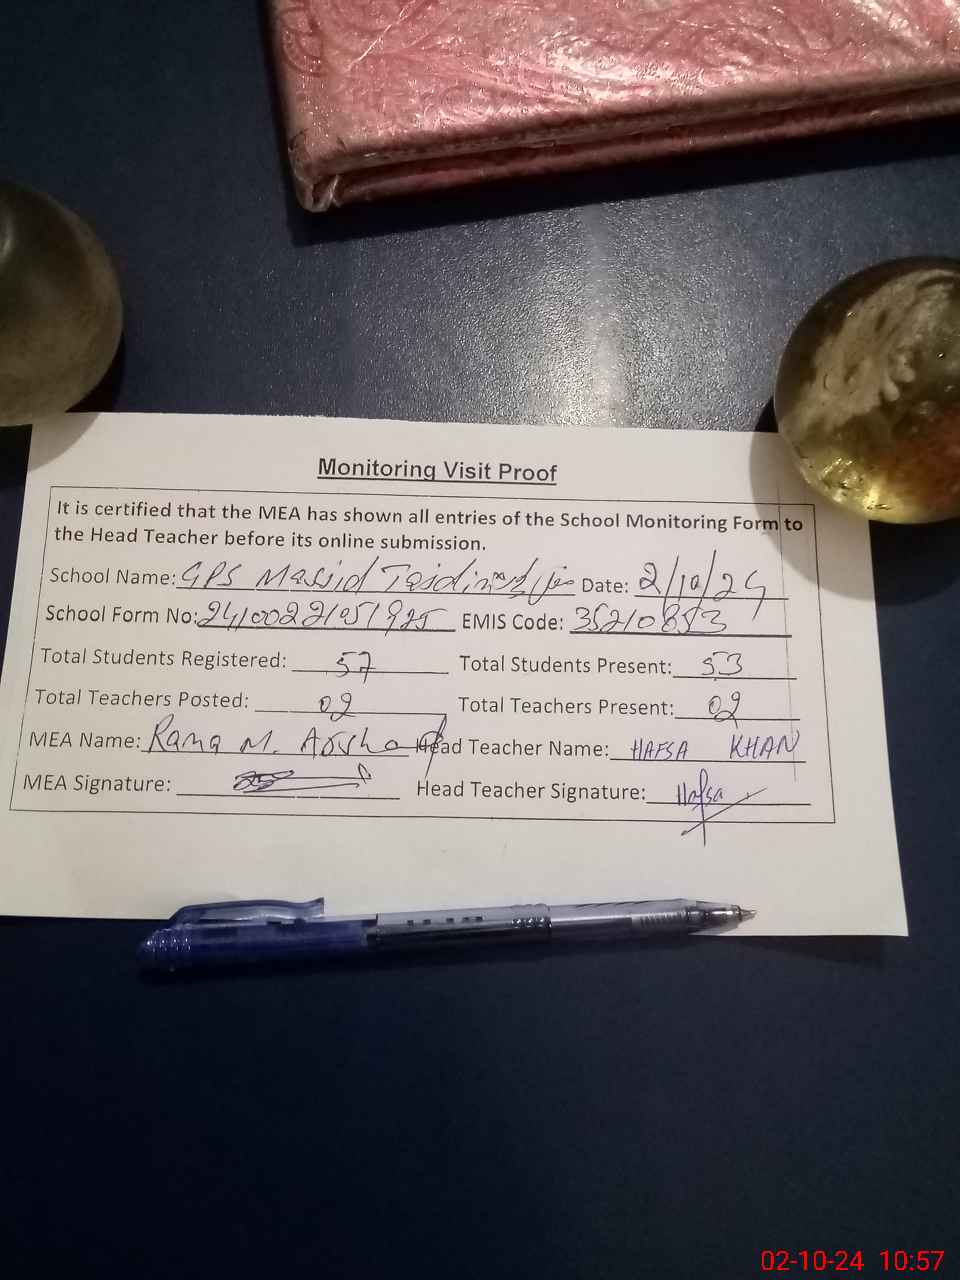 Monitoring Visit Proof
It is certified that the MEA has shown all entries of the School Monitoring Form to
the Head Teacher before its online submission.
School Name: GPS Masjid Date: 2/10/24
School Form No: EMIS Code: 35210853
Total Students Registered: 57 Total Students Present: 53
Total Teachers Posted: 02 Total Teachers Present: 02
MEA Name: Rana M. Arshad Head Teacher Name: HAFSA KHAN
MEA Signature: Head Teacher Signature: Hafsa
02-10-24 10:57